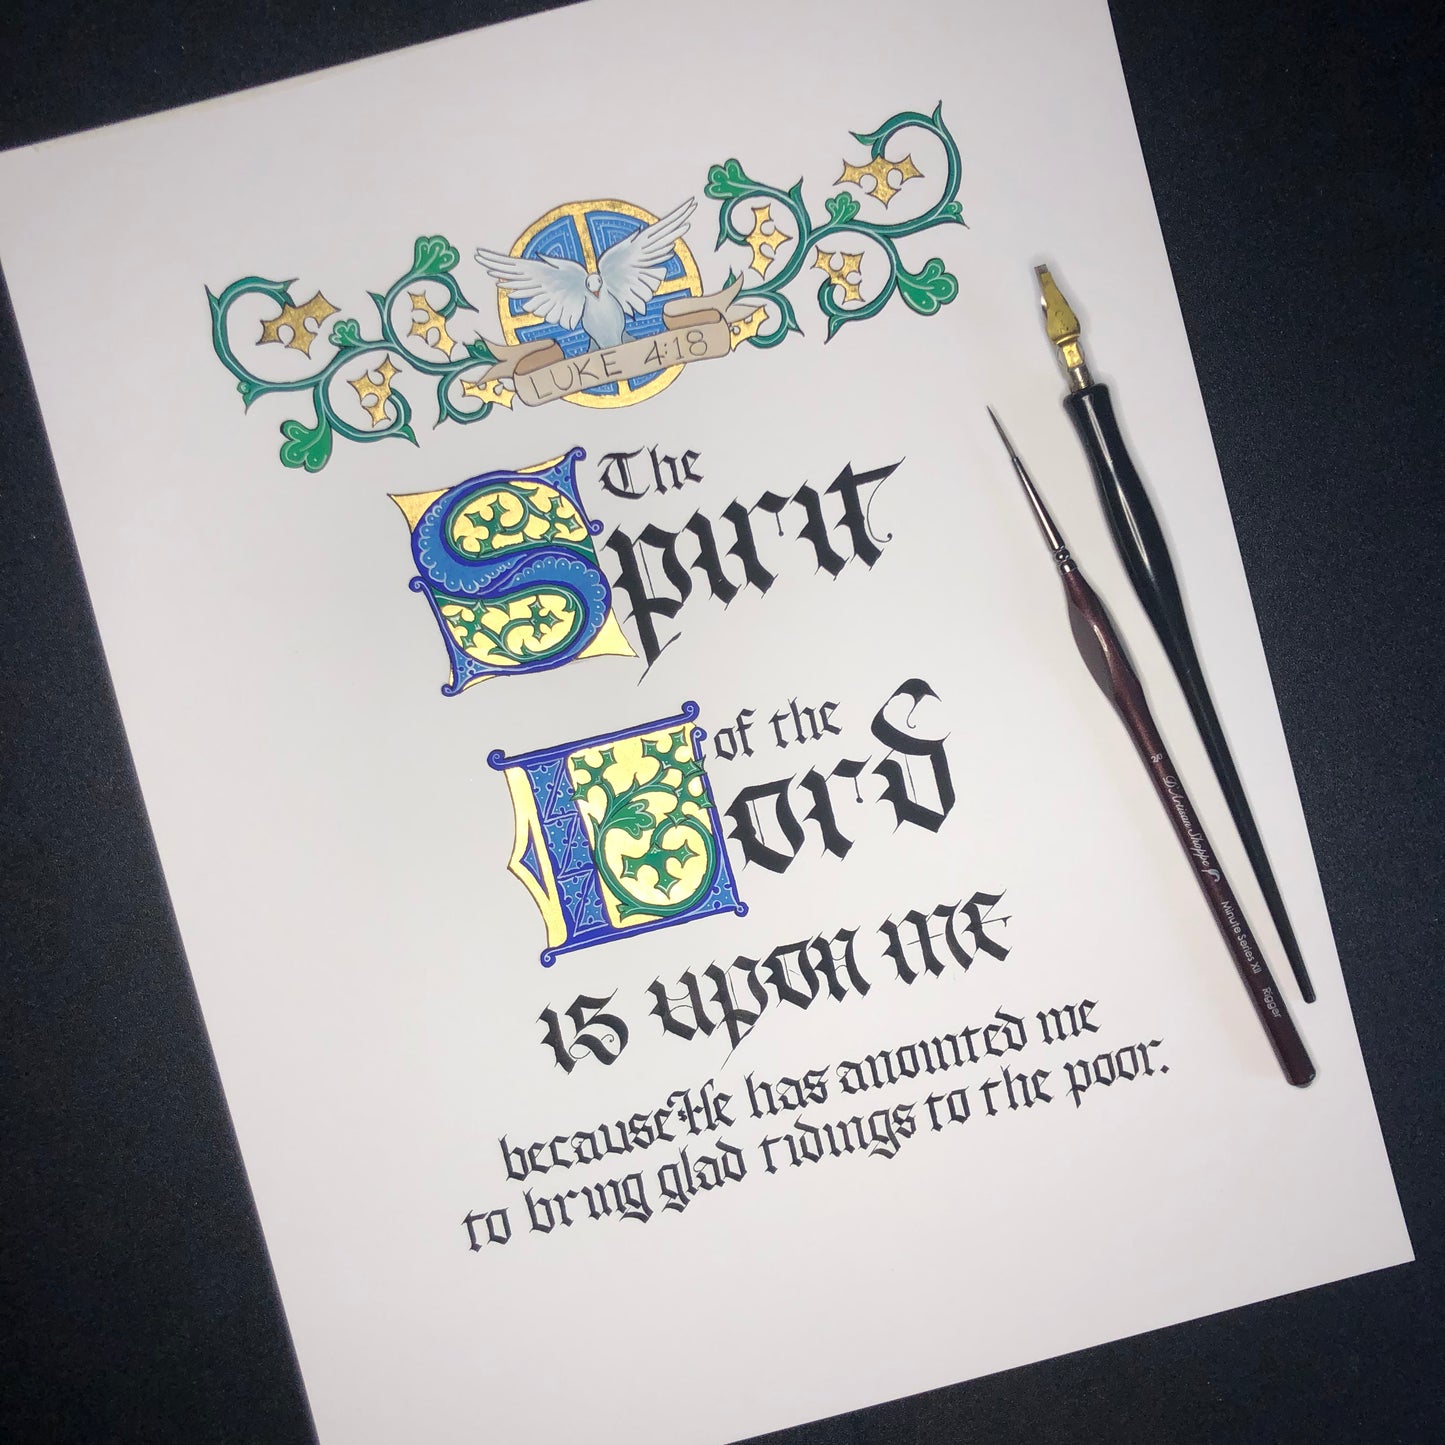 LUKE 4:18
The
Spirit
of the
Lord
is upon me
because He has anointed me
to bring glad tidings to the poor.
D'Artisan Shoppe Minute Series XII Rigger